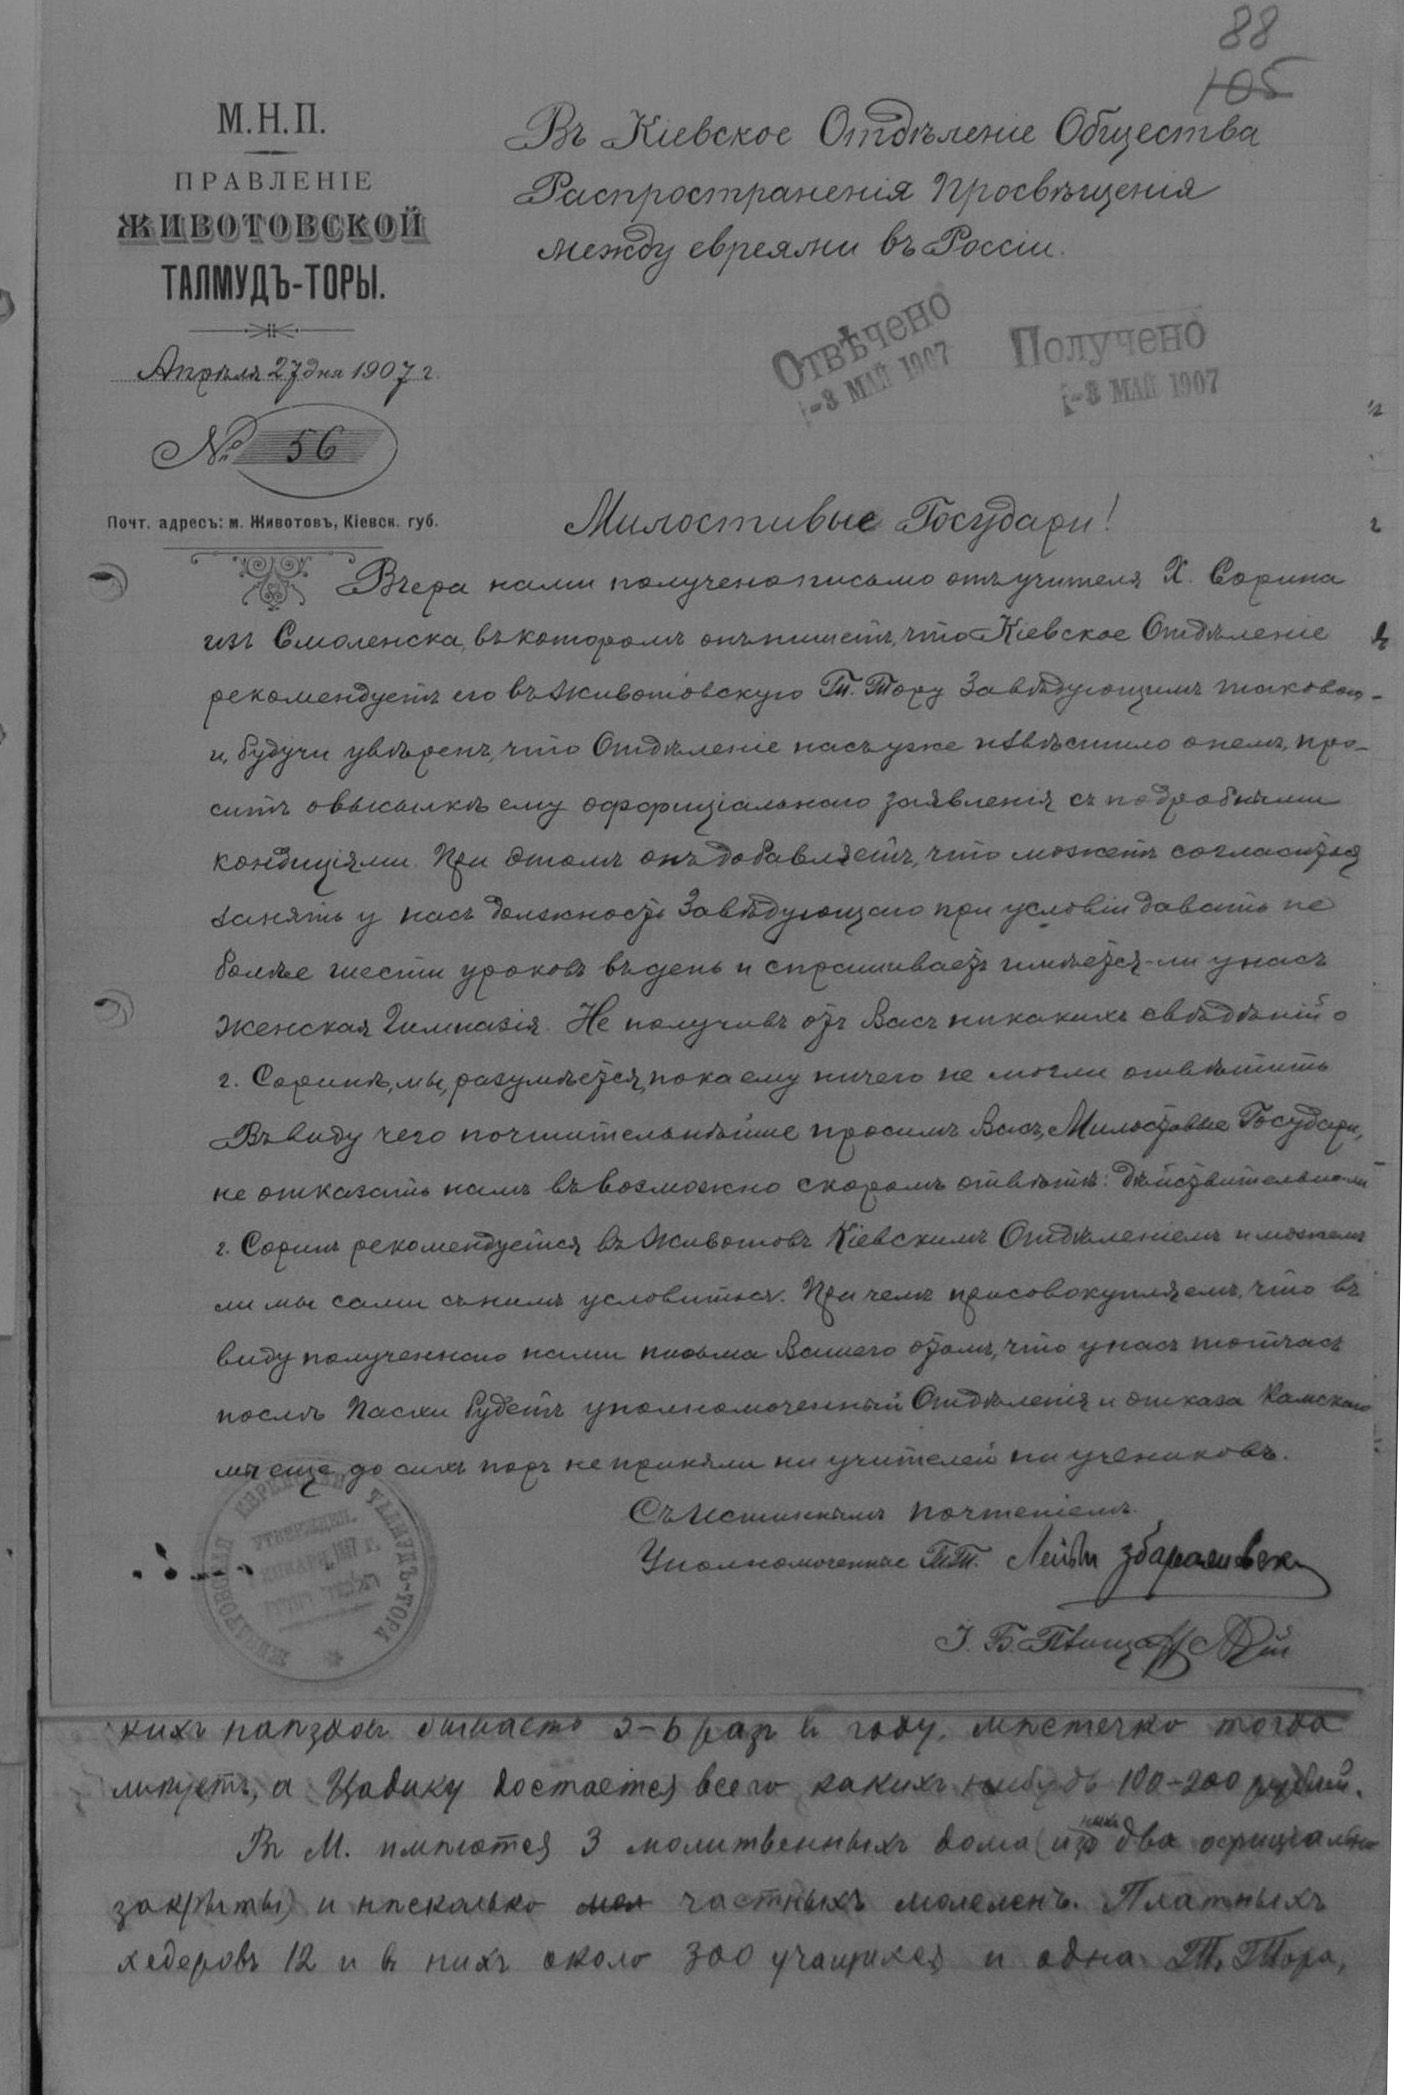 88
105
М.Н.П.
ПРАВЛЕНІЕ
ЖИВОТОВСКОЙ
ТАЛМУДЪ-ТОРЫ.
Апрѣля 27 дня 1907 г.
№ 56
Почт. адресъ: м. Животовъ, Кіевск. губ.
Въ Кіевское Отдѣленіе Общества
Распространенія Просвѣщенія
между евреями въ Россіи.
Отвѣчено
-3 МАЙ 1907
Получено
-3 МАЙ 1907
Милостивые Государи!
Вчера нами получено письмо отъ учителя Х. Сорина
изъ Смоленска, въ которомъ онъ пишетъ, что Кіевское Отдѣленіе
рекомендуетъ его въ Животовскую Т. Тору Завѣдующимъ таковой-
и, будучи увѣренъ, что Отдѣленіе насъ уже извѣстило о немъ, про-
ситъ о высылкѣ ему оффиціальнаго заявленія съ подробными
кондиціями. При этомъ онъ добавляетъ, что можетъ согласиться
занять у насъ должность Завѣдующаго при условіи давать не
болѣе шести уроковъ въ день и спрашиваетъ имѣется-ли у насъ
женская Гимназія. Не получивъ отъ Васъ никакихъ свѣдѣній о
г. Соринѣ, мы, разумѣется, пока ему ничего не могли отвѣтить
Въ виду чего почтительнѣйше просимъ Васъ, Милостивые Государи,
не отказать намъ въ возможно скоромъ отвѣтѣ: дѣйствительно-ли
г. Соринъ рекомендуется въ Животовъ Кіевскимъ Отдѣленіемъ и можемъ
ли мы сами съ нимъ условиться. При чемъ присовокупляемъ, что въ
виду полученнаго нами письма Вашего о томъ, что у насъ тотчасъ
послѣ Пасхи будетъ уполномоченный Отдѣленія и отказа Камскаго
мы еще до сихъ поръ не приняли ни учителей ни учениковъ.
Съ истиннымъ почтеніемъ
Уполномоченные Т.Т. Лейби Збарашевск
І. Б. Птица
ЖИВАТОВСКАЯ ЕВРЕЙСКАЯ ТАЛМУДЪ-ТОРА
УТВЕРЖДЕН.
кихъ наѣздовъ бываетъ 5-6 разъ въ году. мѣстечко тогда
ликуетъ, а Цадику достается всего какихъ нибудь 100-200 рублей.
Въ М. имѣются 3 молитвенныхъ дома (изъ нихъ два офиціально
закрыты) и нѣсколько мол частныхъ молеленъ. Платныхъ
хедеровъ 12 и въ нихъ около 300 учащихся и одна Т. Тора,